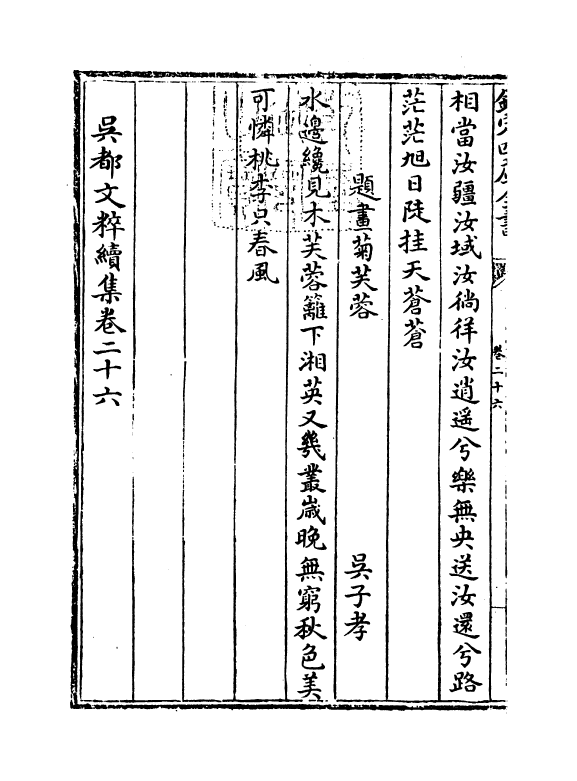 欽定四庫全書
卷二十六
相當汝疆汝域汝徜徉汝逍遥兮樂無央送汝還兮路
茫茫旭日陡挂天蒼蒼
題畫菊芙蓉 吳子孝
水邊纔見木芙蓉籬下湘英又幾叢歲晚無窮秋色美
可憐桃李只春風
吳都文粹續集卷二十六